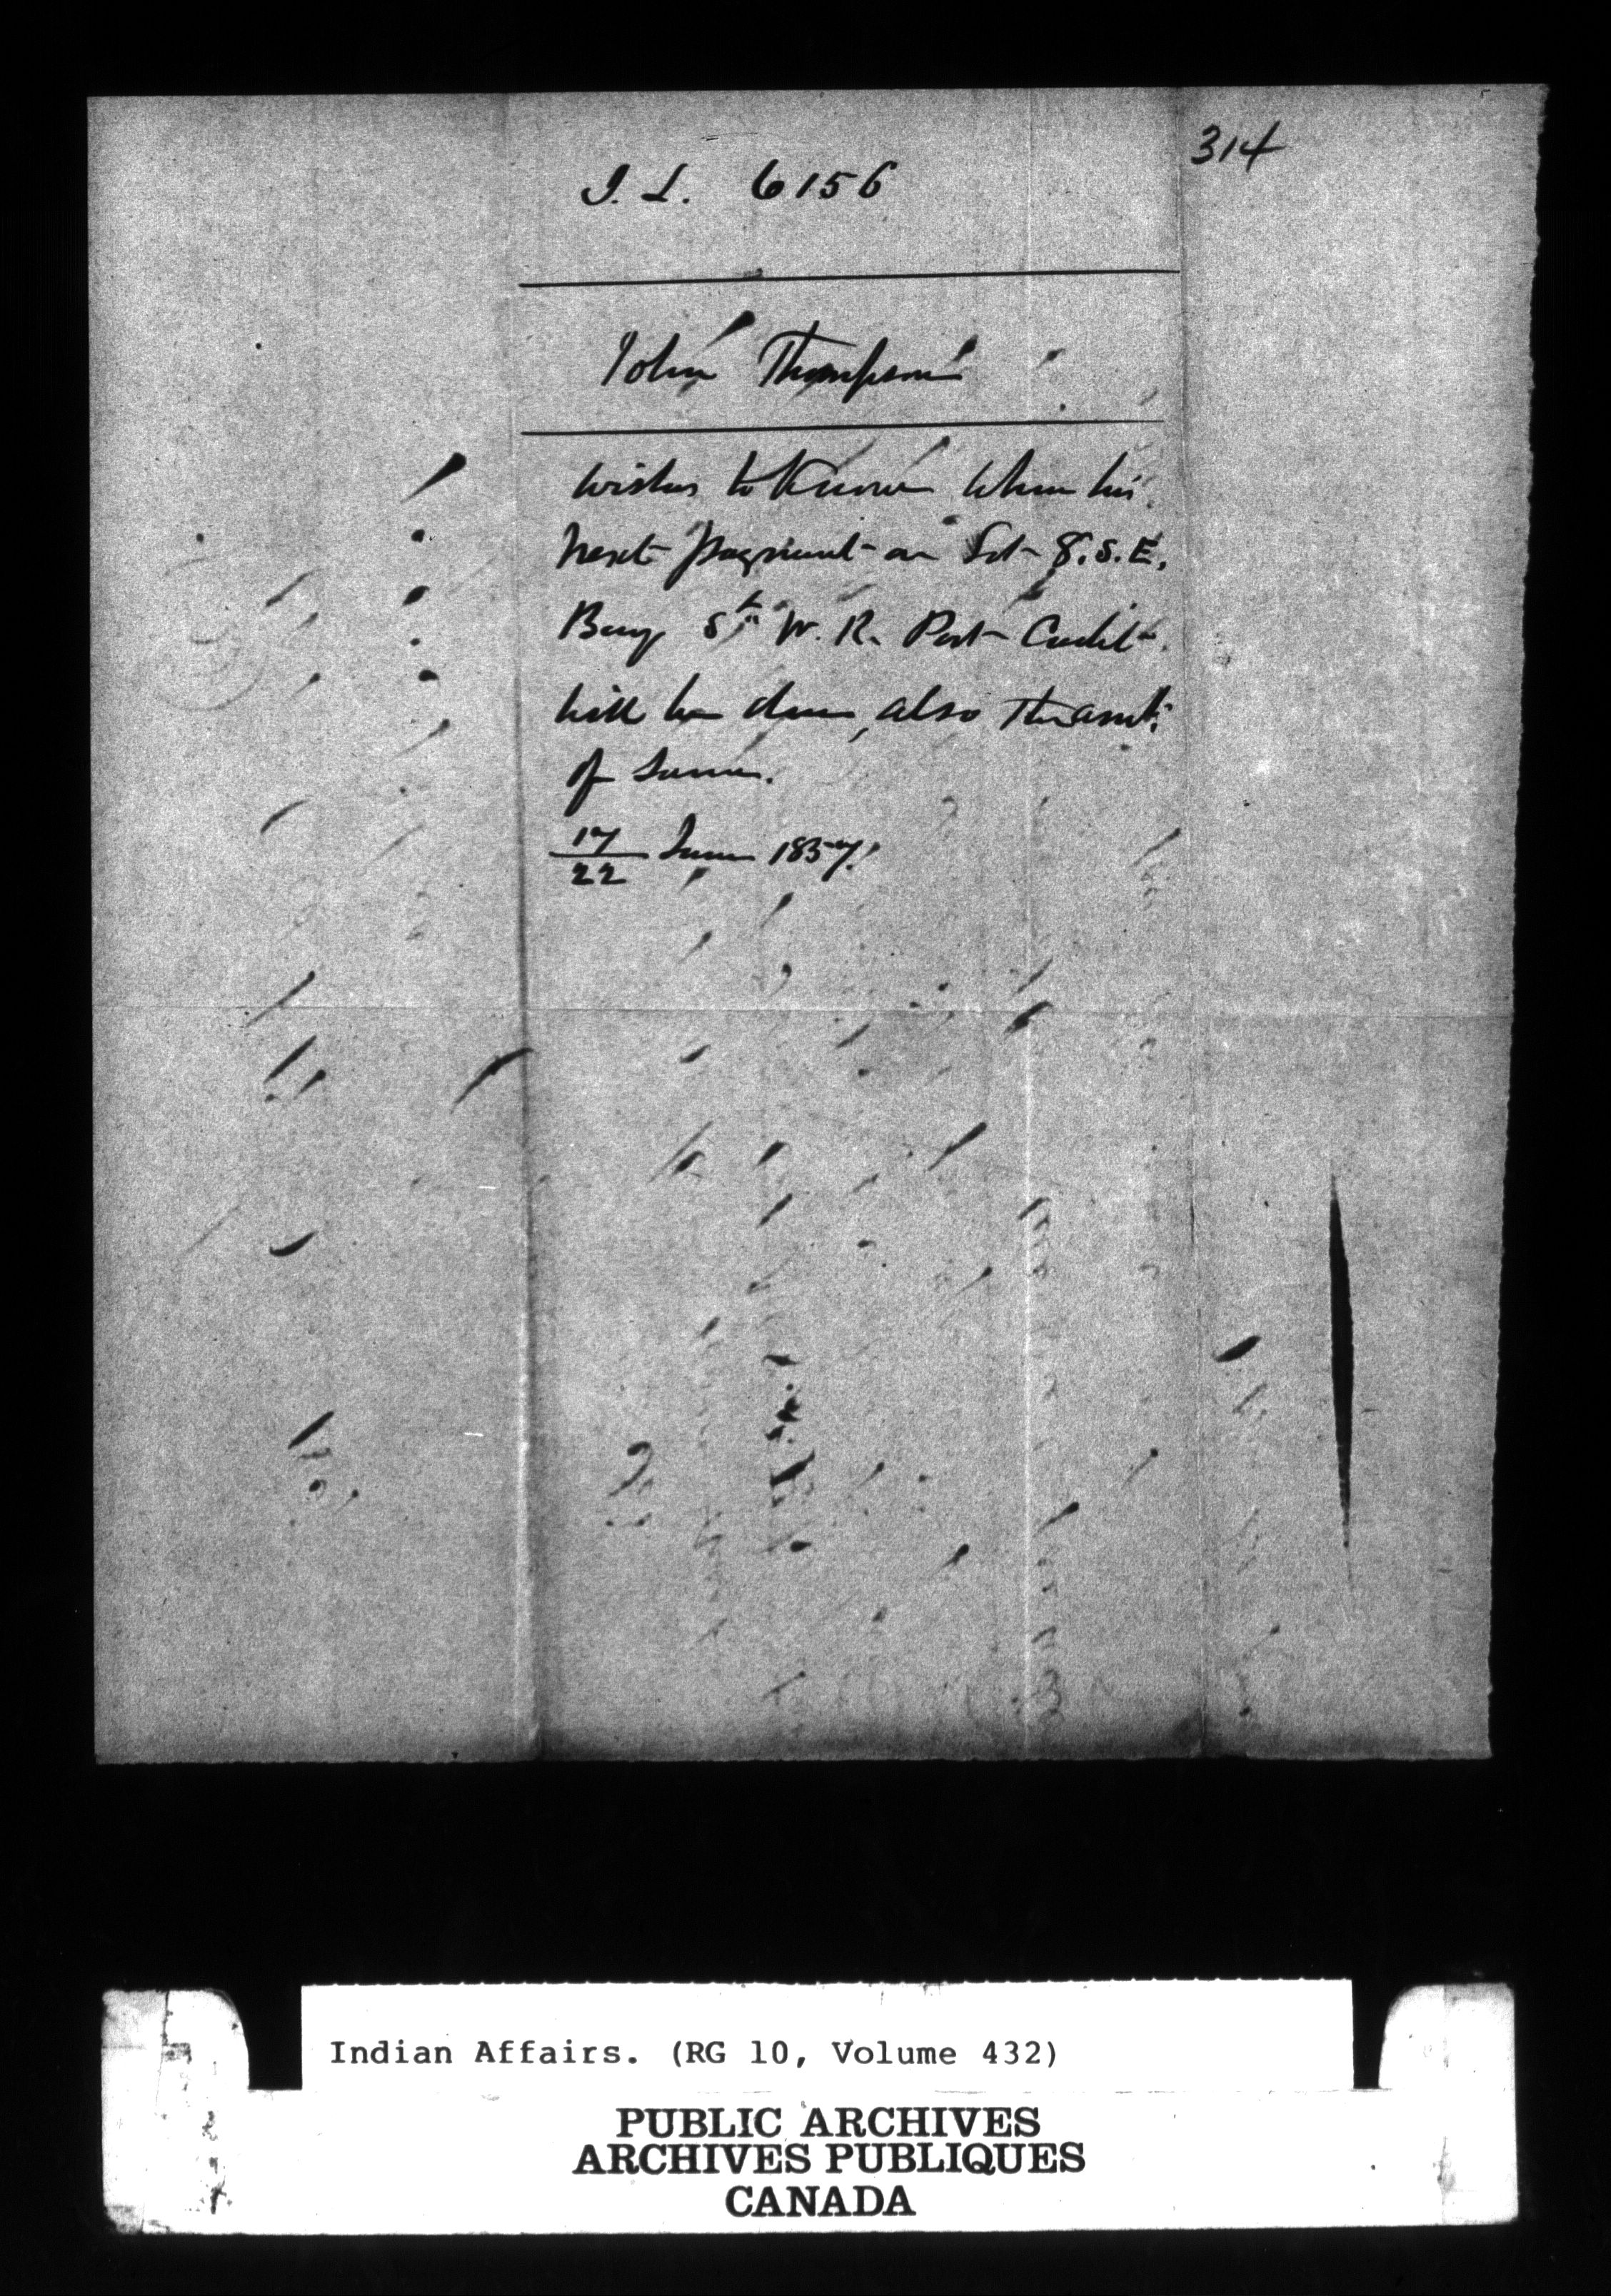 314
I. L. 6156
John Thompson
wishes to Know when his
next payment on Lot 8. S. E.
Bay 5th W. R. Port Credit
will be due, also the amt:
of same.
17/22 June 1857.
Indian Affairs. (RG 10, Volume 432)
PUBLIC ARCHIVES
ARCHIVES PUBLIQUES
CANADA